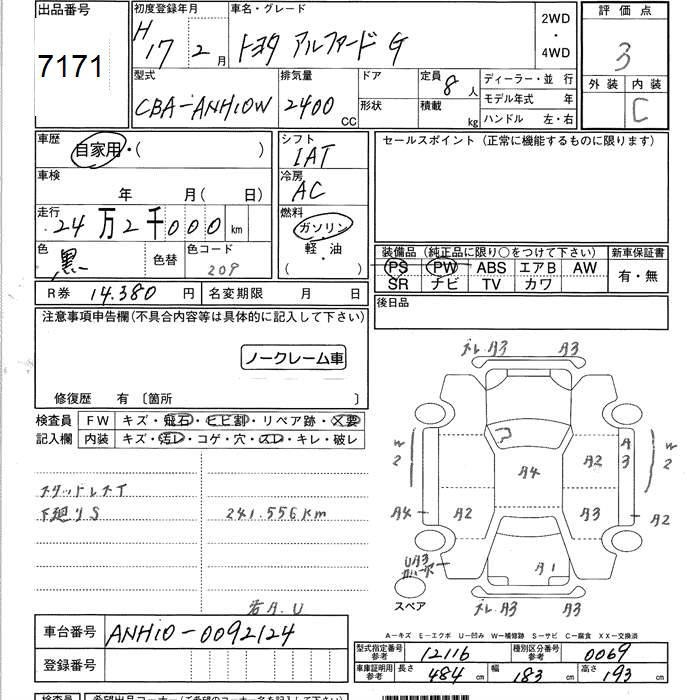 出品番号
7171
初度登録年月
H17 2月
車名・グレード
トヨタ アルファード G
2WD
・
4WD
評価点
3
外装 内装
C
型式
CBA-ANH10W
排気量
2400 CC
ドア
形状
定員 8人
積載 kg
ディーラー・並 行
モデル年式 年
ハンドル 左・右
車歴
自家用・( )
車検
年 月( 日)
走行
24万2千000 km
色
黒
色替
色コード
209
シフト
IAT
冷房
AC
燃料
ガソリン
軽・油
( )
セールスポイント(正常に機能するものに限ります)
装備品(純正品に限り○をつけて下さい)
PS PW ABS エアB AW
SR ナビ TV カワ
新車保証書
有・無
後日品
R券 14.380 円
名変期限 月 日
注意事項申告欄(不具合内容等は具体的に記入して下さい)
ノークレーム車
修復歴 有〔箇所 〕
検査員 FW キズ・飛石・ヒビ割・リペア跡・X要
記入欄 内装 キズ・汚レ・コゲ・穴・スレ・キレ・破レ
スタッドレスT
下廻りS
241.556km
ズレ A3 A3
W2
A3
W2
A4
A2
A4
A2
A3
A2
UA3
A1
スペア
ズレ A3 A3
A−キズ E−エクボ U−凹み W−補修跡 S−サビ C−腐食 XX−交換済
車台番号
ANH10-0092124
登録番号
型式指定番号 参考 12116
種別区分番号 参考 0069
車庫証明用 参考 長さ 484cm 幅 183cm 高さ 193cm
検査員
希望出品コーナー(ご希望のコーナー名を記入下さい)